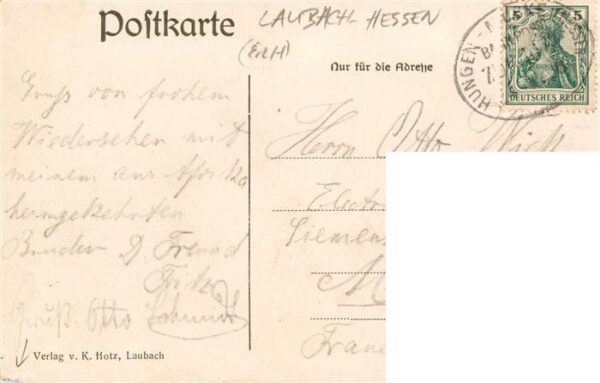 Postkarte
LAUBACH HESSEN
Nur für die Adresse
HUNGEN
5 5
DEUTSCHES REICH
Gruß von frohem
Wiedersehen mit
meinem aus Afrika
heimgekehrten
Bruder D. Freund
Fritz
Gruß. Otto Schmidt
Herrn Otto
Electro
Siemens
M
Fran
Verlag v. K. Hotz, Laubach